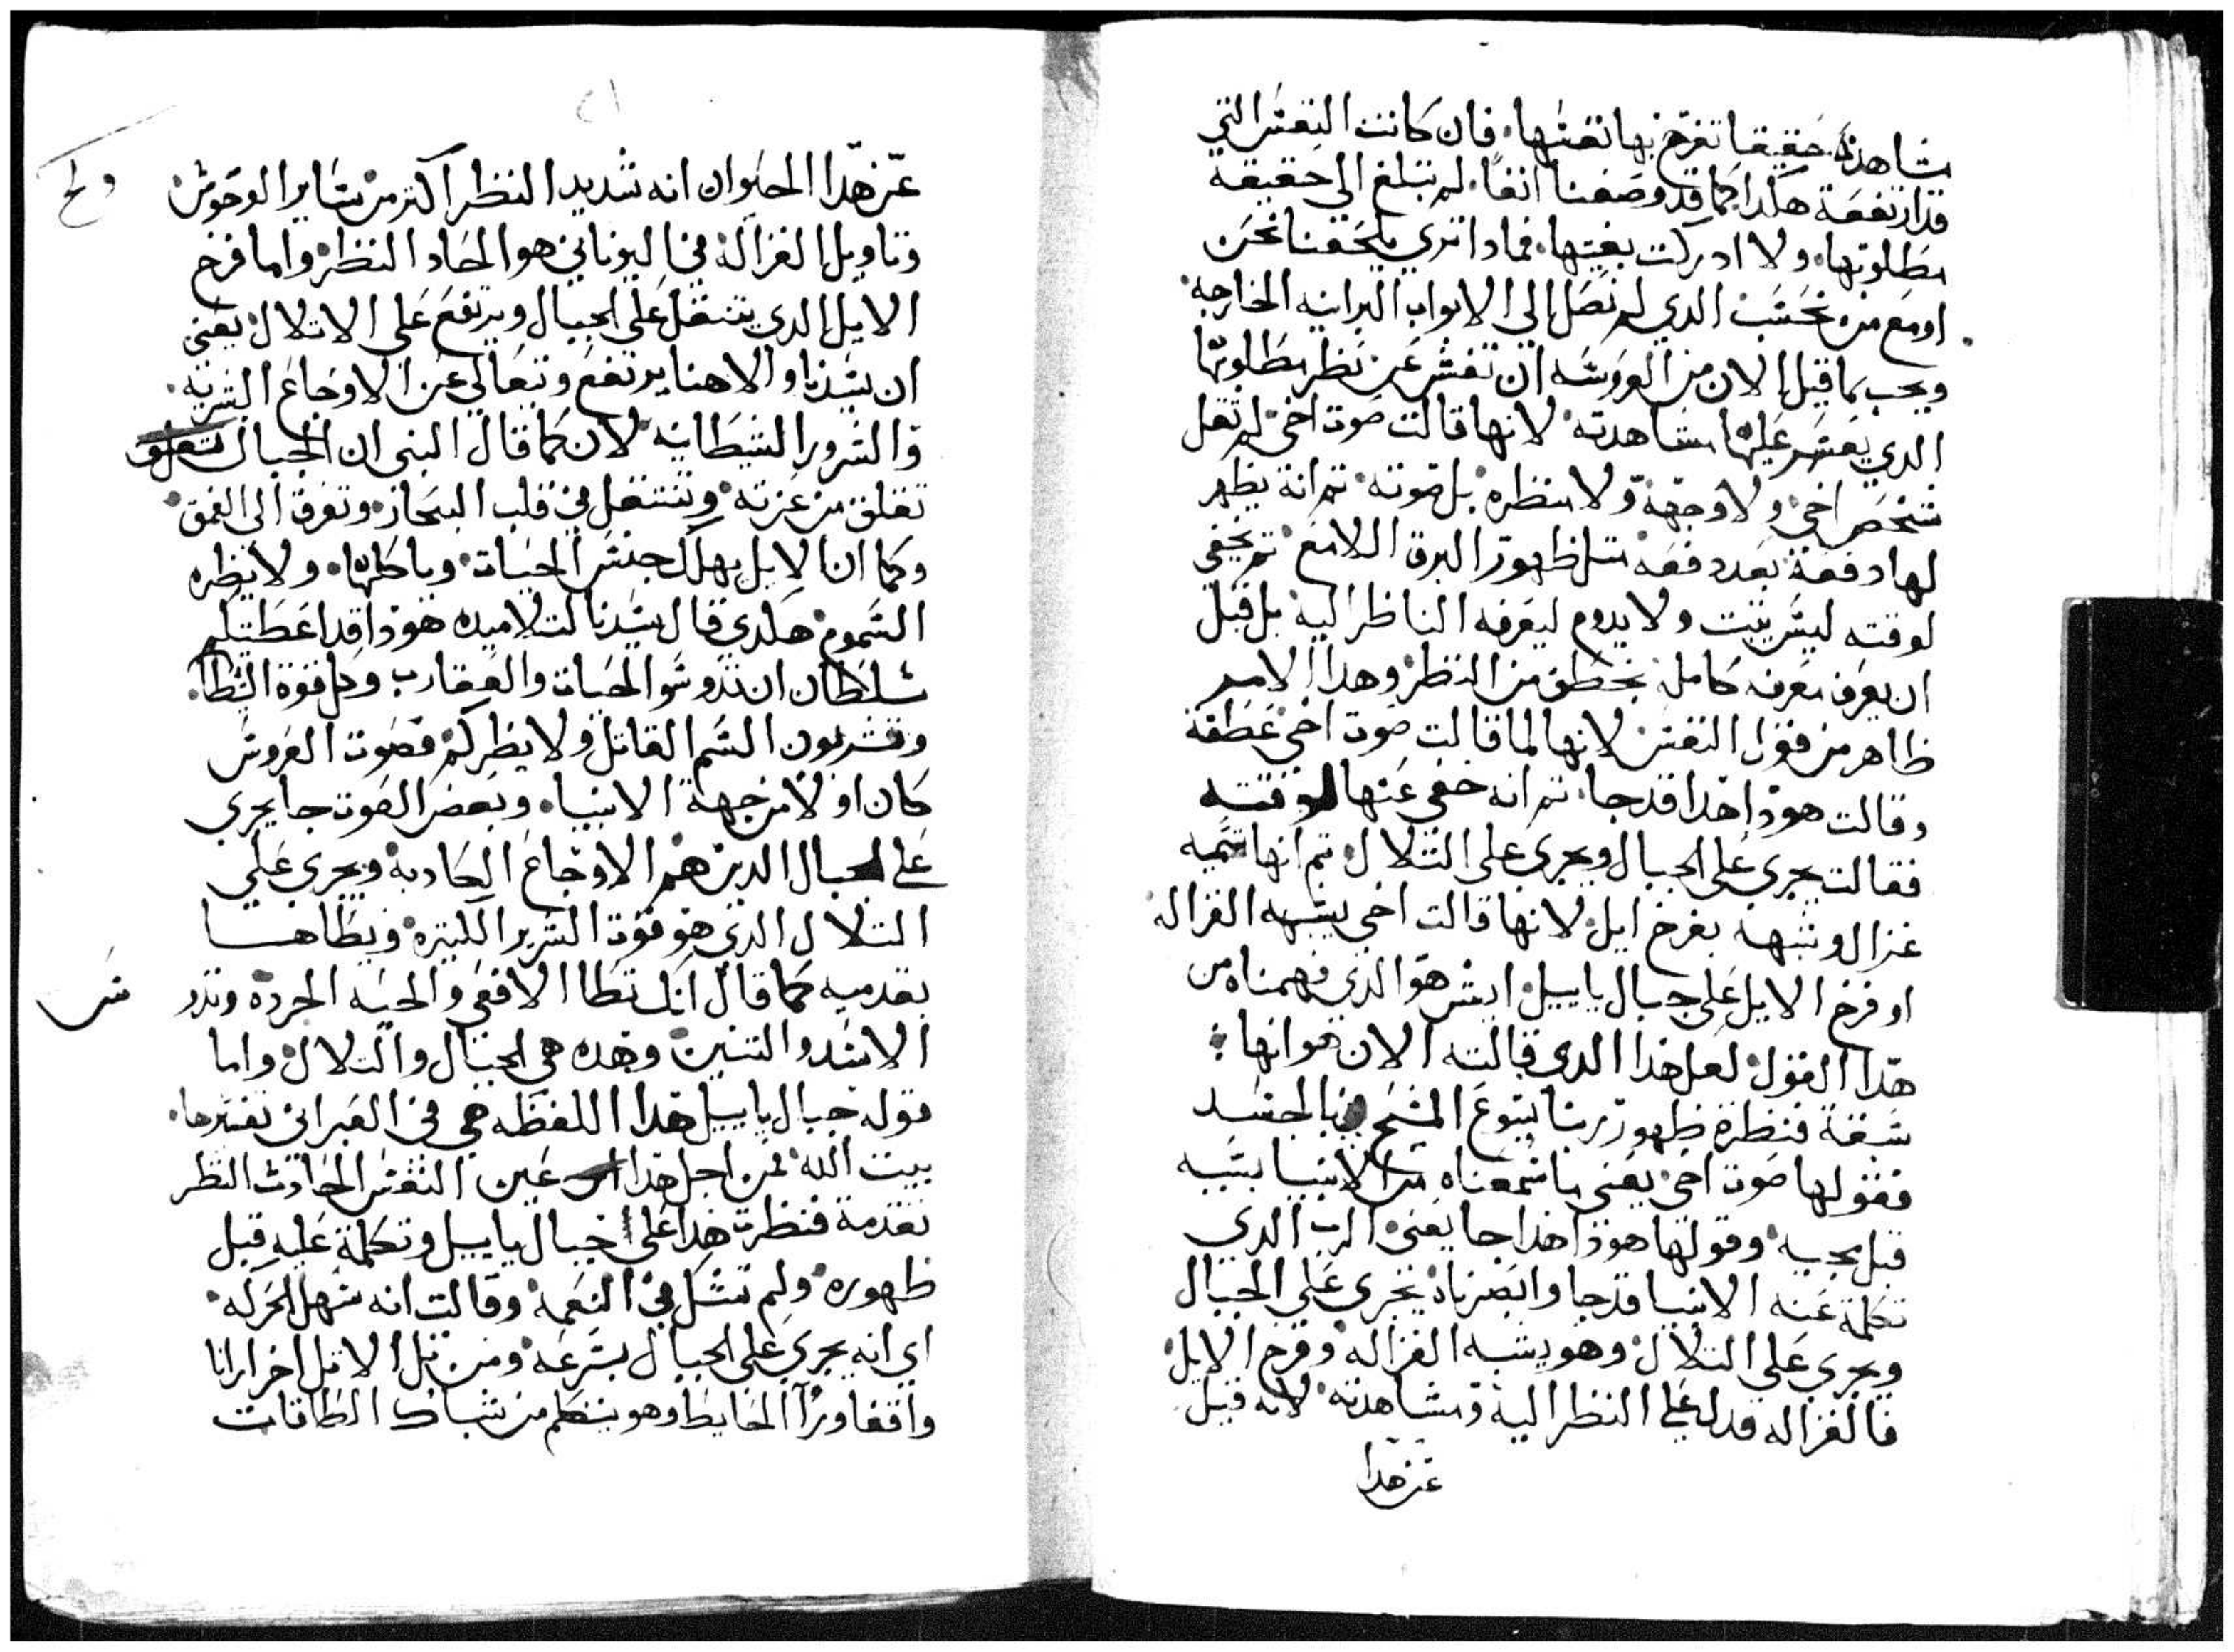 مشاهدة حقيقيا تفرح بها نفسها. فان كانت النفس التي
قد ارتفعة هكدا كما قد وصفنا انفاً. لم تبلغ الي حقيقة
مطلوبها. ولا ادركت بغيتها. فمادا تري يلحقنا نحن
او مع من نحسب الدي لم نصل الي الابواب البرانيه الخارجه.
ويجب بما قيل الان من العروسه ان نفسر عن نظر مطلوبها
الدي يعسر عليها مشاهدته لانها قالت صوت اخي لم تقل
شخص اخي ولا وجهه ولا منظره بل صوته تم انه يظهر
لها دفعة بعد دفعه متل ظهور البرق اللامع تم يخفي
لوقته ليس يتبت ولا يدوم ليعرفه الناظر اليه بل قبل
ان يعرف معرفه كامله يخطف من النظر وهدا الامر
ظاهر من قول النفس لانها لما قالت صوت اخي عطفة
وقالت هودا هدا قد جا. تم انه خفي عنها لوقته
فقالت يجري علي الجبال ويجري علي التلال تم انها تسميه
غزال وتشبهه بفرخ ايل. لانها قالت اخي يشبه الغزاله
او فرخ الايل علي جبال باييل. ايش هو الذي فهمناه من
هدا القول لعل هدا الدي قالته الان هو انها
سبقة فنظرة ظهور ربنا يسوع المسيح بالجسد
فقولها صوت اخي يعني ما سمعناه من الانبيا بسببه
قبل مجيه وقولها هودا هدا جا يعني الرب الدي
تكلمة عنه الانبيا قد جا وابصرناه يجري علي الجبال
ويجري علي التلال وهو يشبه الغزاله وفرخ الايل
فالغزاله قد له علي النظر اليه ومشاهدته لانه قيل
عن هدا
٢١
عن هدا الحيوان انه شديد النظر اكتر من ساير الوحوش
وتاويل الغزالة في اليوناني هو الحاد النظر واما فرخ
الايل الدي يتنقل علي الجبال ويرتفع علي الاتلال يعني
ان سيدنا والاهنا يرتفع ويتعالي عن الاوجاع الشريه
والشرور الشيطانيه لان كما قال النبي ان الجبال
تقلق من عزته وتنتقل في قلب البحار وتغرق الي العمق
وكما ان الايل يهلك جنس الحيات وياكلها. ولا يضره
السموم هكدي قال سيدنا لتلاميده هودا قد اعطيتكم
سلطان ان تدوسوا الحيات والعقارب وكل قوة الشيطا.
وتشربون السم القاتل ولا يضركم فصوت العروس
كان اولا من جهة الانبياء وبعض الصوت جا يجري
علي الجبال الدين هم الاوجاع الكادبه ويجري علي
التلال الدي هو قوة الشرير الكتيره ويطاها
بقدميه كما قال انك تطا الافعي والحيه الحرده وتدو
س
الاسد والتنين وهده هي الجبال والتلال واما
قوله جبال باييل هدا اللفظه هي في العبراني تفسيرها.
بيت الله فمن اجل هدا عين النفس الحادت النظر
تقدمة فنظرت هدا علي جبال باييل وتكلمة عليه قبل
ظهوره ولم تشك في النعمه وقالت انه سهل الحركه.
اي انه يجري علي الجبال بسرعه ومن تل الا تل اخر ارانا
واقفا ورآ الحايط وهو يتكلم من شباك الطاقات